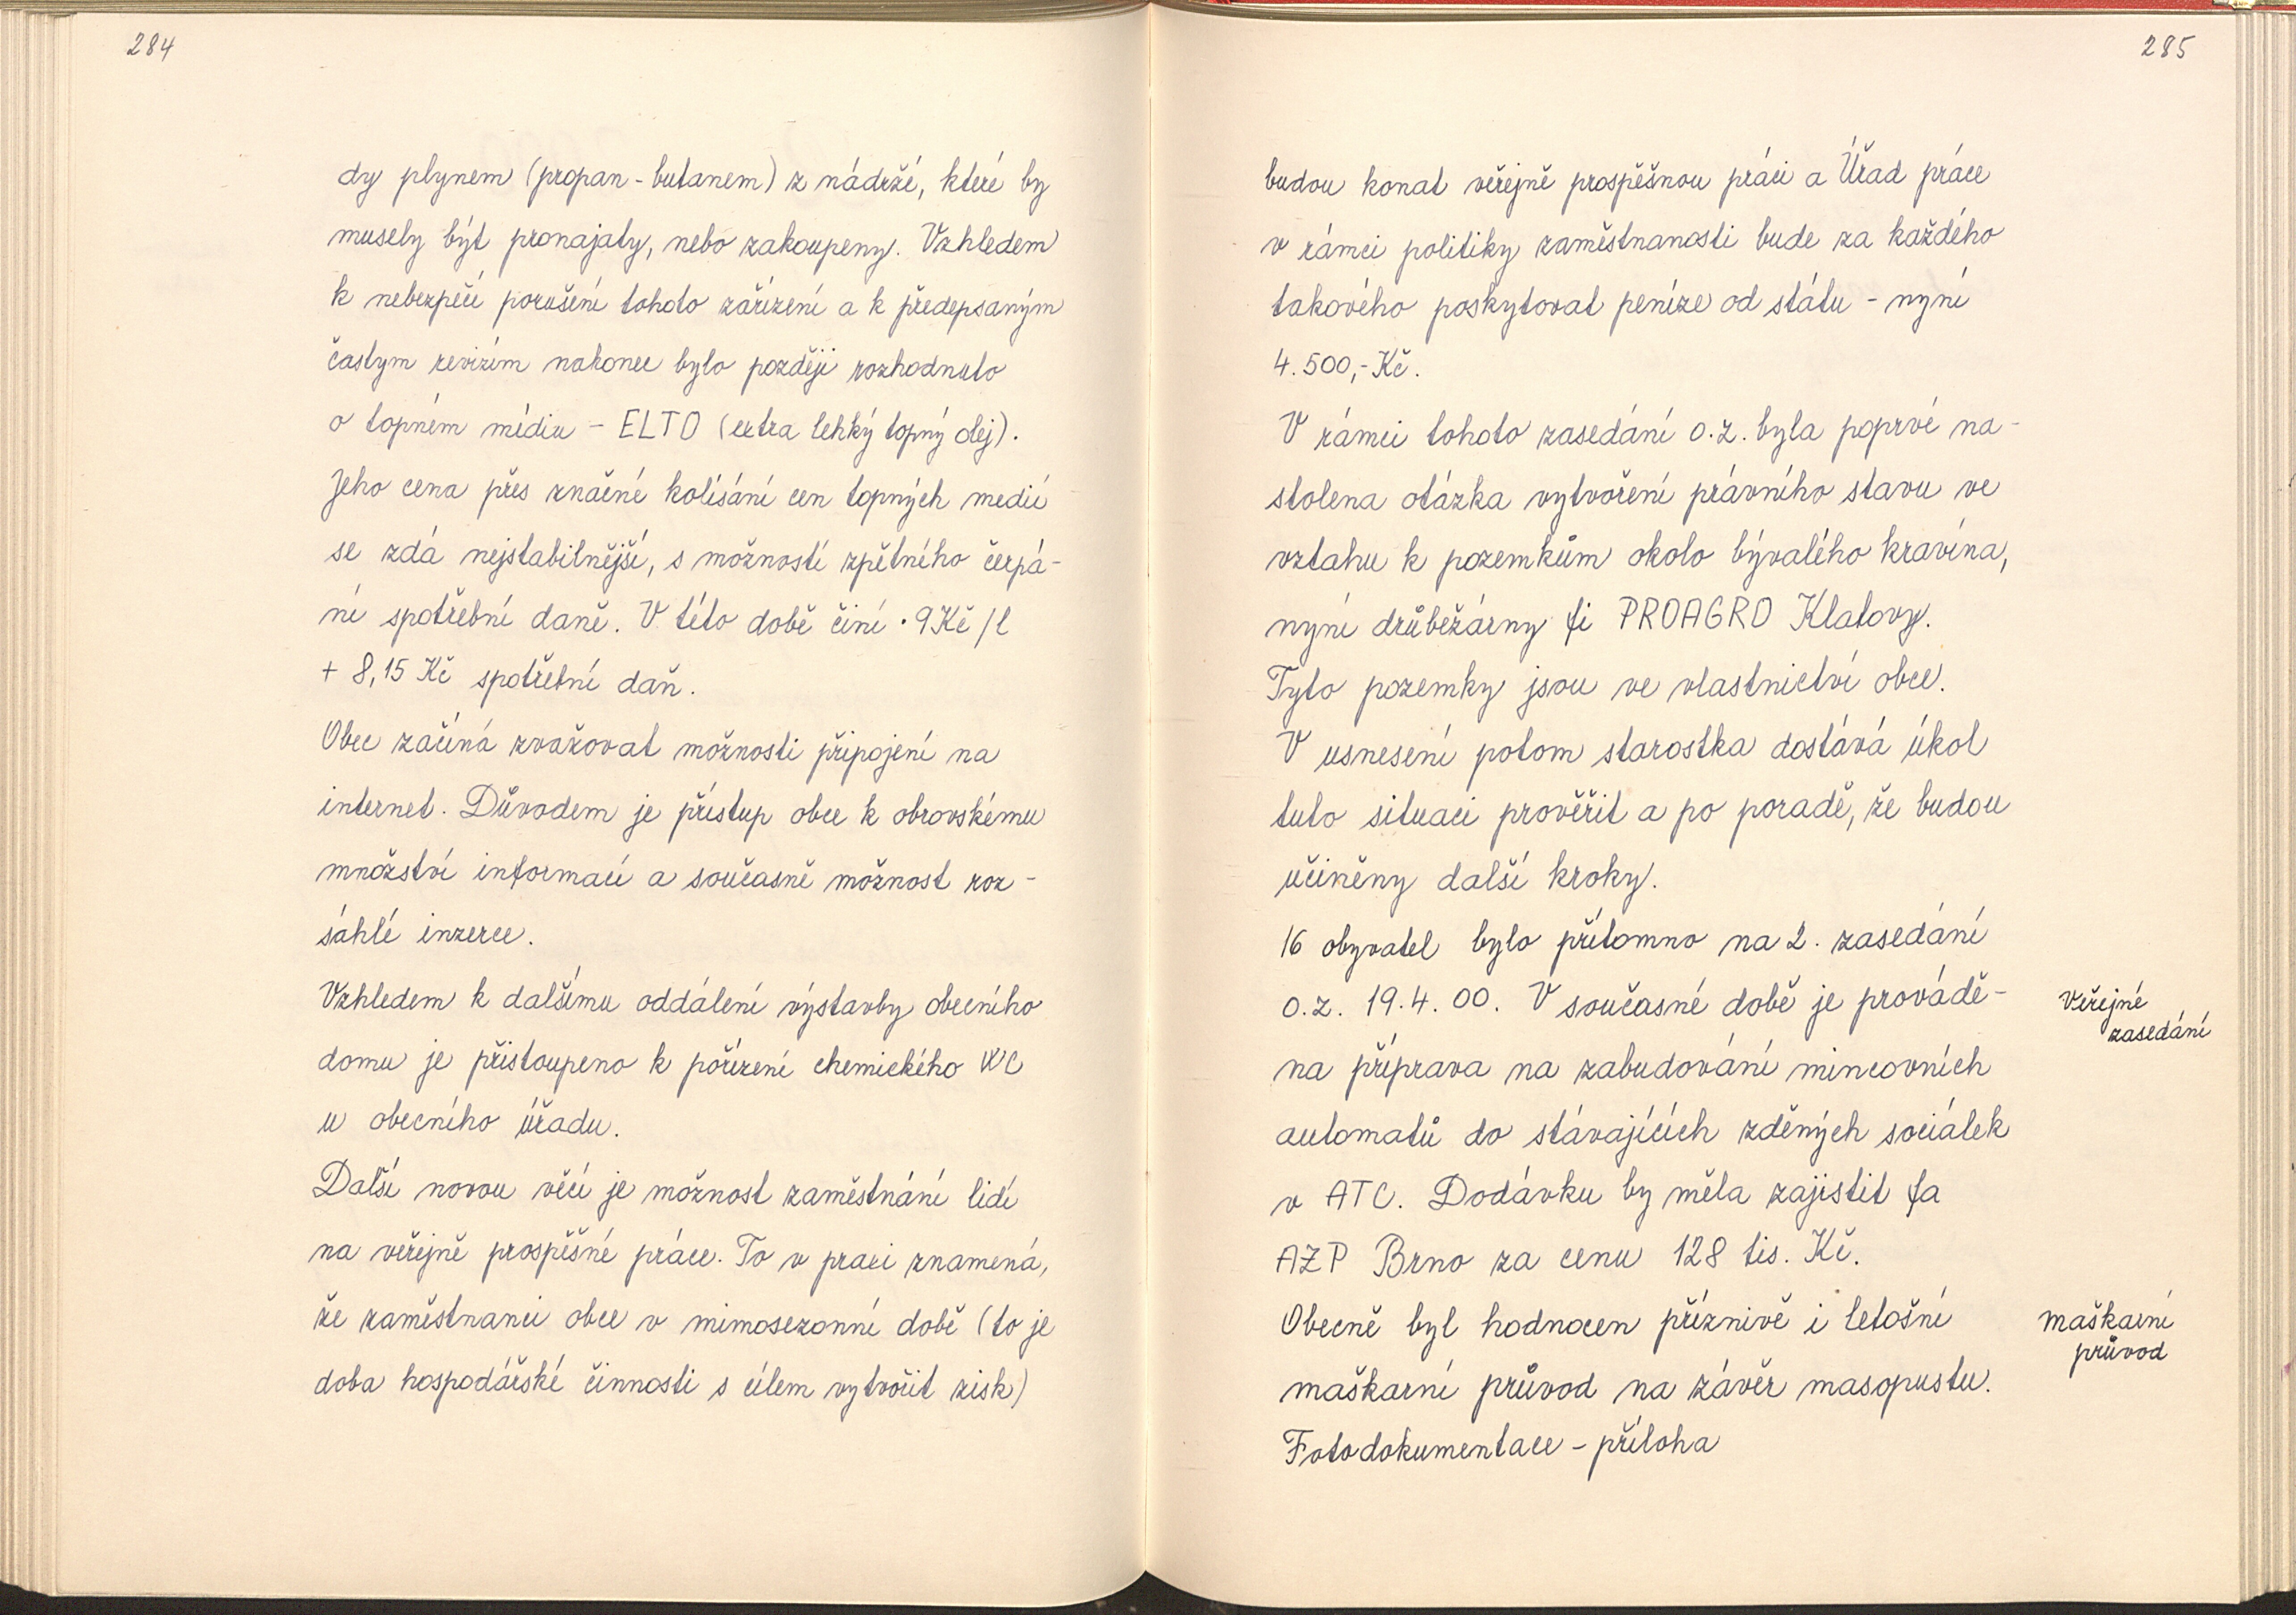 284
dy plynem (propan - butanem) z nádrží, které by
musely být pronajaty, nebo zakoupeny. Vzhledem
k nebezpečí porušení tohoto zářízení a k předepsaným
častym revizím nakonec bylo později rozhodnuto
o topném médiu - ELTO (extra lehký topný olej).
Jeho cena přes značné kolísání cen topných medií
se zdá nejstabilnější, s možností zpětného čerpá-
ní spotřební daně. V této době činí · 9 Kč/l
+ 8,15 Kč spotřební daň.
Obec začíná zvažovat možnosti připojení na
internet. Důvodem je přístup obce k obrovskému
množství informací a současně možnost roz-
sáhlé inzerce.
Vzhledem k dalšímu oddálení výstavby obecního
domu je přistoupeno k pořízení chemického WC
u obecního úřadu.
Další novou věcí je možnost zaměstnání lidí
na veřejně prospěšné práce. To v praxi znamená,
že zaměstnanci obce v mimosezonní době (to je
doba hospodářské činnosti s cílem vytvořit zisk)
285
budou konat veřejně prospěšnou práci a Úřad práce
v rámci politiky zaměstnanosti bude za každého
takového poskytovat peníze od státu - nyní
4.500,- Kč.
V rámci tohoto zasedání o.z. byla poprvé na-
stolena otázka vytvoření právního stavu ve
vztahu k pozemkům okolo bývalého kravína,
nyní drůbežárny fi PROAGRO Klatovy.
Tyto pozemky jsou ve vlastnictví obce.
V usnesení potom starostka dostává úkol
tuto situaci prověřit a po poradě, že budou
učiněny další kroky.
16 obyvatel bylo přítomno na 2. zasedání
o.z. 19.4.00. V současné době je provádě-
na příprava na zabudování mincovních
automatů do stávajících zděných sociálek
v ATC. Dodávku by měla zajistit fa
AZP Brno za cenu 128 tis. Kč.
Obecně byl hodnocen příznivě i letošní
maškarní průvod na závěr masopustu.
Fotodokumentace - příloha
Veřejné
zasedání
maškarní
průvod